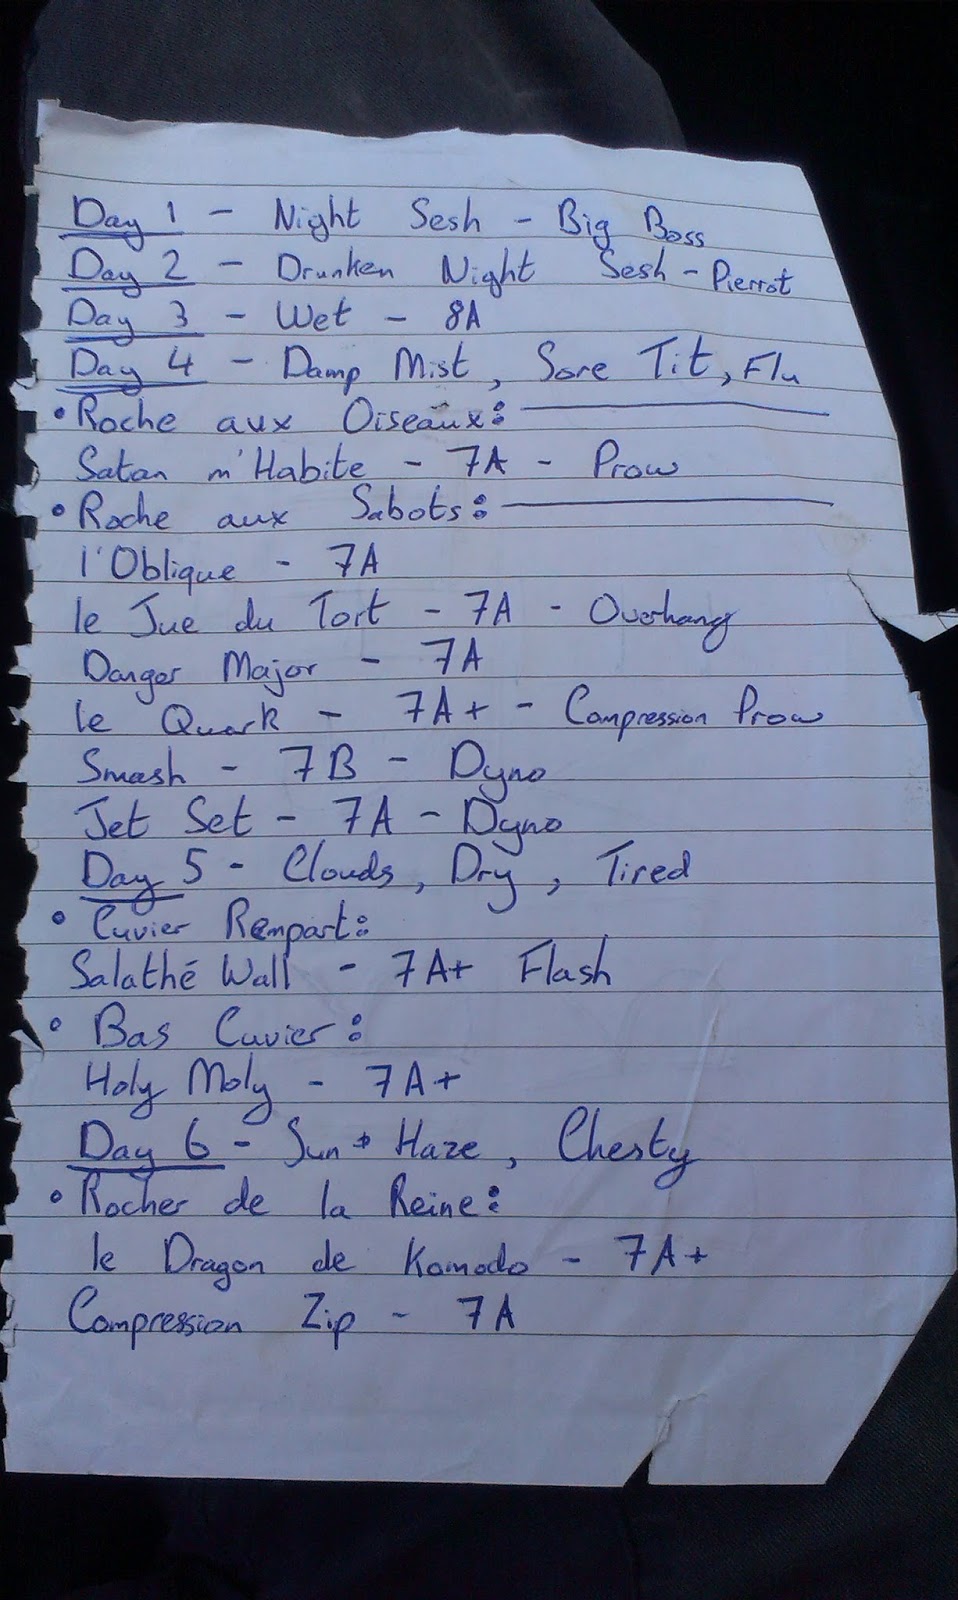 Day 1 - Night Sesh - Big Boss
Day 2 - Drunken Night Sesh - Pierrot
Day 3 - Wet - 8A
Day 4 - Damp Mist, Sore Tit, Flu
• Roche aux Oiseaux:
Satan m'Habite - 7A - Prow
• Roche aux Sabots:
l'Oblique - 7A
le Jue du Tort - 7A - Overhang
Danger Major - 7A
le Quark - 7A+ - Compression Prow
Smash - 7B - Dyno
Jet Set - 7A - Dyno
Day 5 - Clouds, Dry, Tired
• Cuvier Rempart:
Salathé Wall - 7A+ Flash
• Bas Cuvier:
Holy Moly - 7A+
Day 6 - Sun + Haze, Chesty
• Rocher de la Reine:
le Dragon de Komodo - 7A+
Compression Zip - 7A